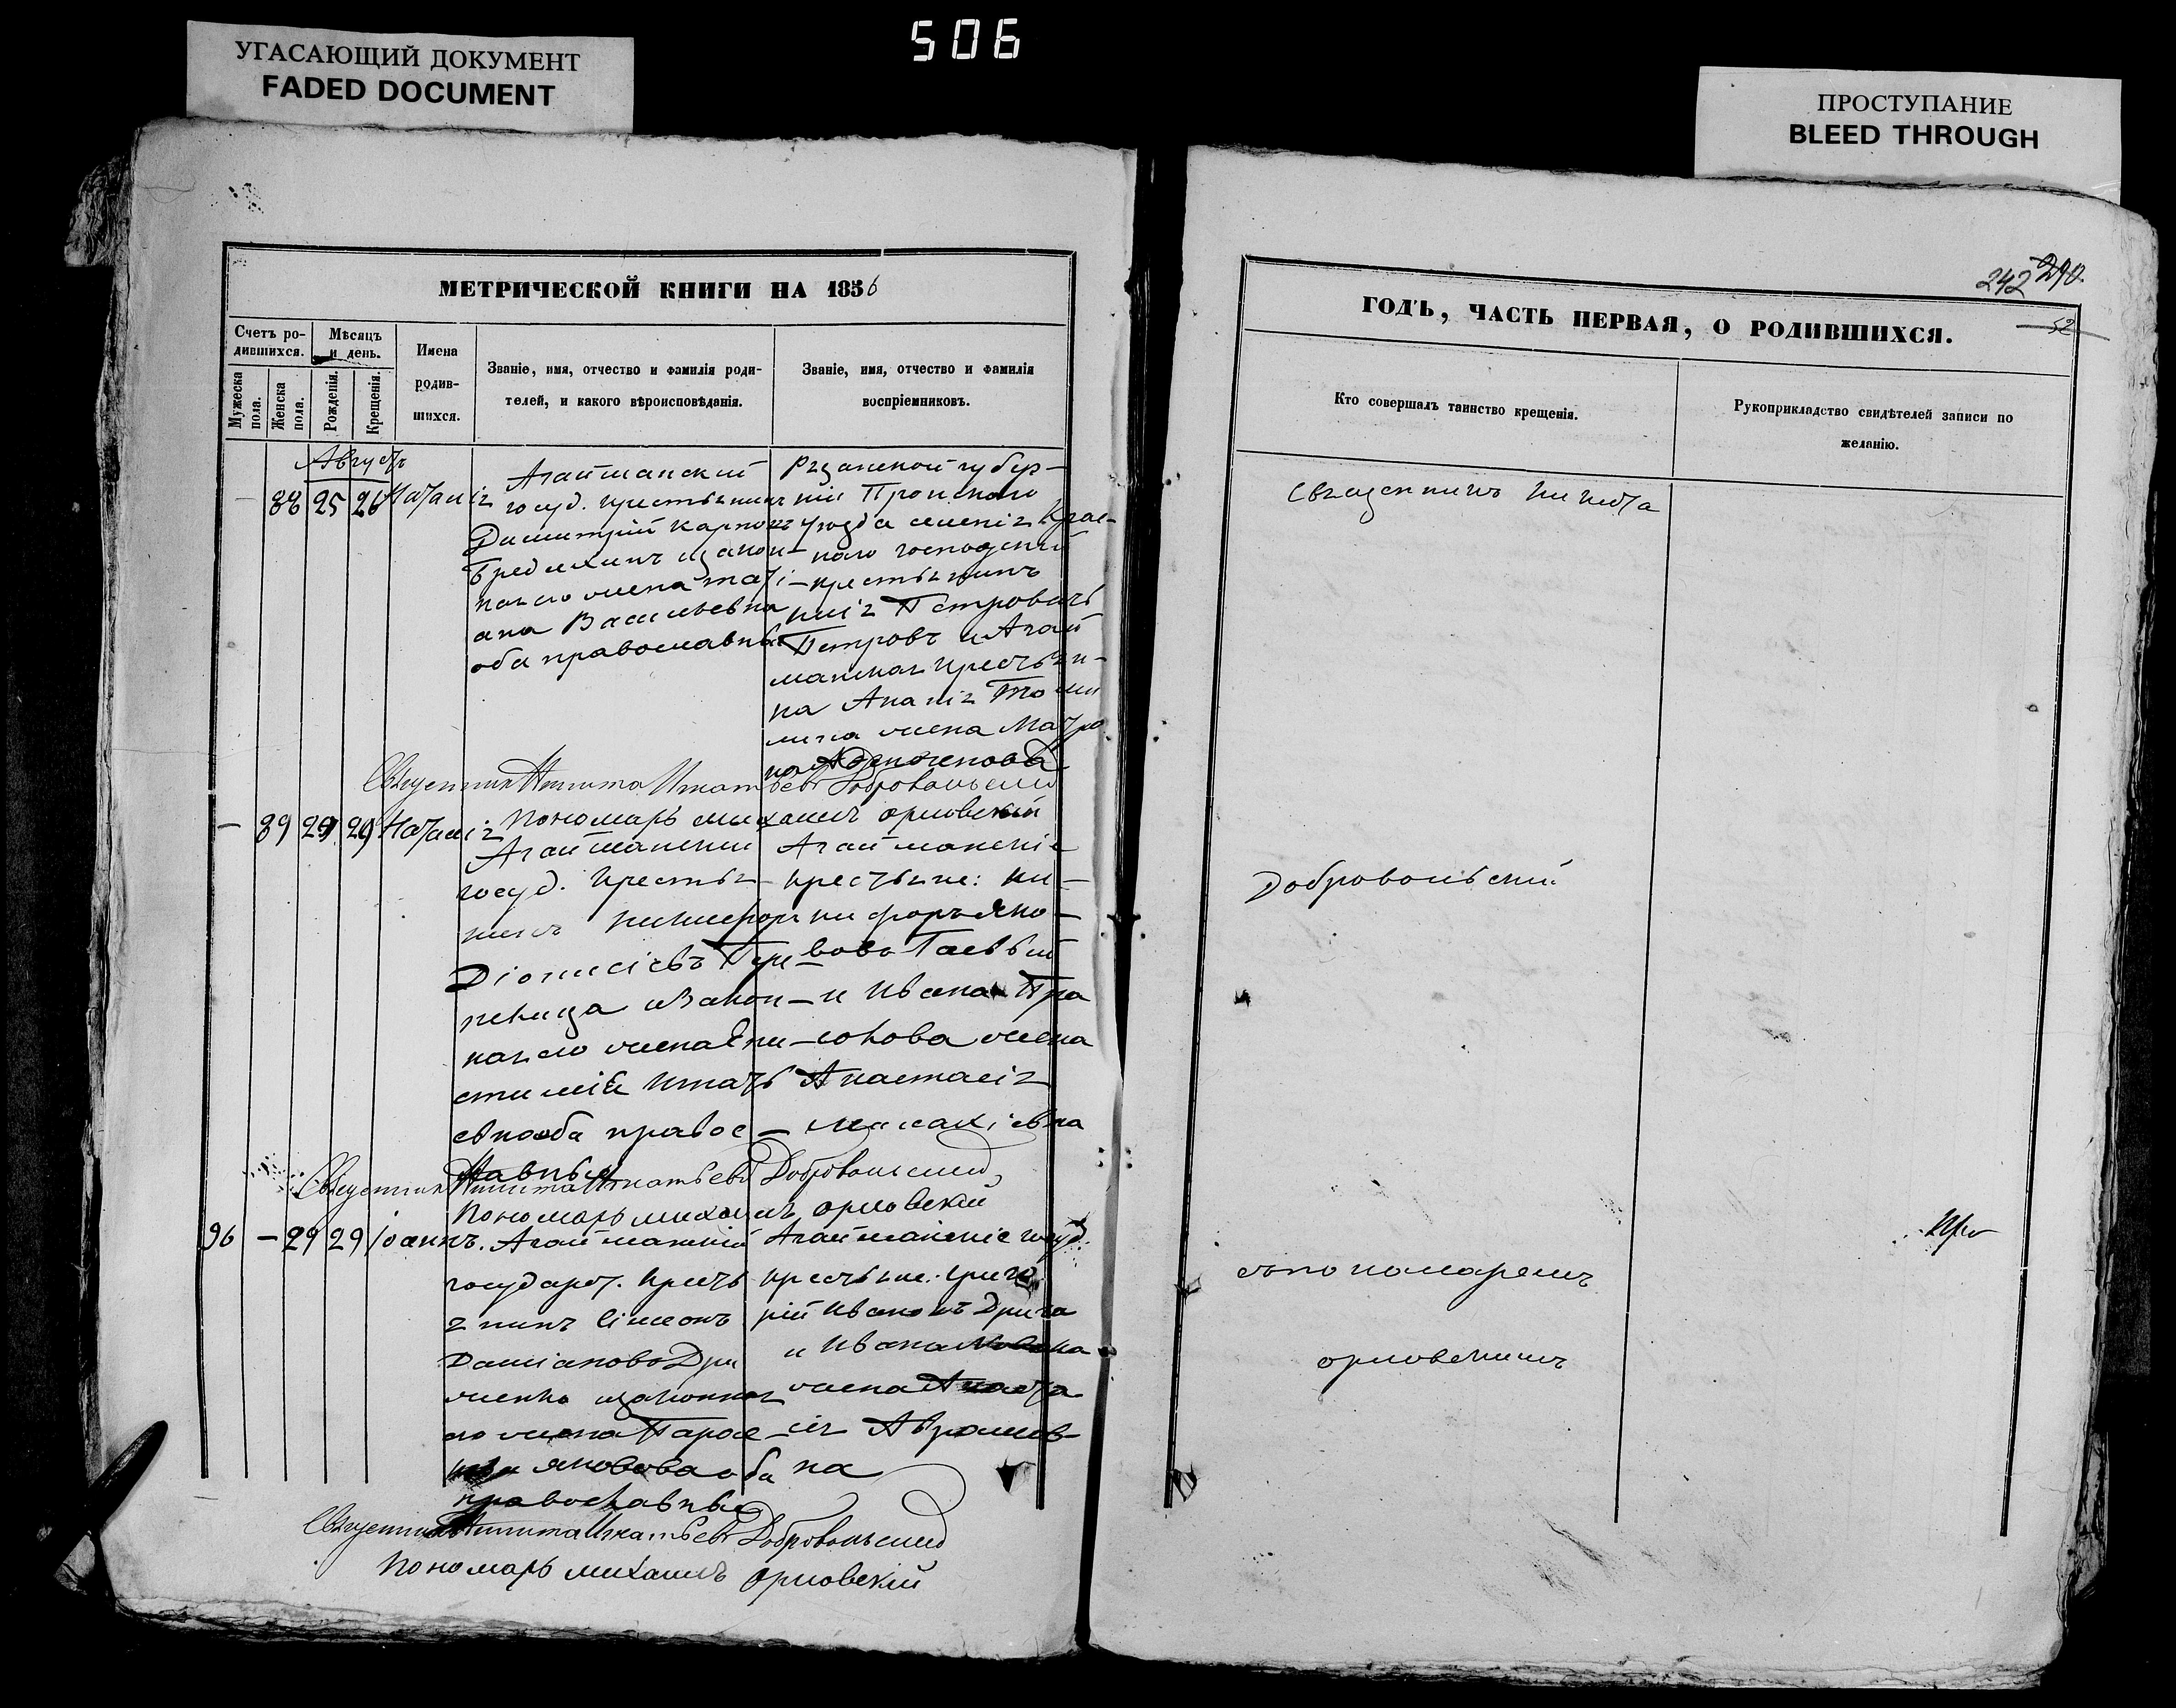 506
УГАСАЮЩИЙ ДОКУМЕНТ
FADED DOCUMENT
ПРОСТУПАНИЕ
BLEED THROUGH
МЕТРИЧЕСКОЙ КНИГИ НА 1856
Счетъ ро-
дившихся.
Мѣсяцъ
и день.
Мужеска
пола.
Женска
пола.
Рожденія.
Крещенія.
Имена
родив-
шихся.
Званіе, имя, отчество и фамилія роди-
телей, и какого вѣроисповѣданія.
Званіе, имя, отчество и фамилія
воспріемниковъ.
Августъ
— 88 25 26 Наталія
Агайманский
госуд. крестьянинъ
Димитрий Карповъ
изакон-
ная его жена Тати-
ана Васильевна
оба православные
Рязанской губер-
ніи Пронскаго
уезда селенія Крас-
наго господский
крестьянинъ
Петровичъ
Петровъ и Агай
манская крестьян-
ка
жена Матро
на
Священникъ Никита Игнатьевъ Добровольский
Пономарь Михаилъ Орловский
— 89 29 29 Наталія
Агайманский
госуд. крестья-
нинъ Никифоръ
Діонисіевъ
изакон-
ная его жена
оба правос-
лавные
Агайманскіе
крестьяне: Ни-
кифоръ Яко-
вовъ Гаевый
и Ивана
жена
Анастасія
Священникъ Никита Игнатьевъ Добровольский
Пономарь Михаилъ Орловский
96 — 29 29 Іоаннъ.
Агайманский
государ. кресть
янинъ Сімеонъ
Даміановъ Дри
женко изаконная
его жена Парас
Яковова оба
православные
Агайманскіе госуд.
крестьяне: Григо
рій Ивановъ Дрига
и Ивана
жена Анаста
сія Аврамов-
на
Священникъ Никита Игнатьевъ Добровольский
Пономарь Михаилъ Орловскій
242 290.
52
ГОДЪ, ЧАСТЬ ПЕРВАЯ, О РОДИВШИХСЯ.
Кто совершалъ таинство крещенія.
Рукоприкладство свидѣтелей записи по
желанію.
Священникъ Никита
Добровольский
съ пономаремъ
Орловскимъ